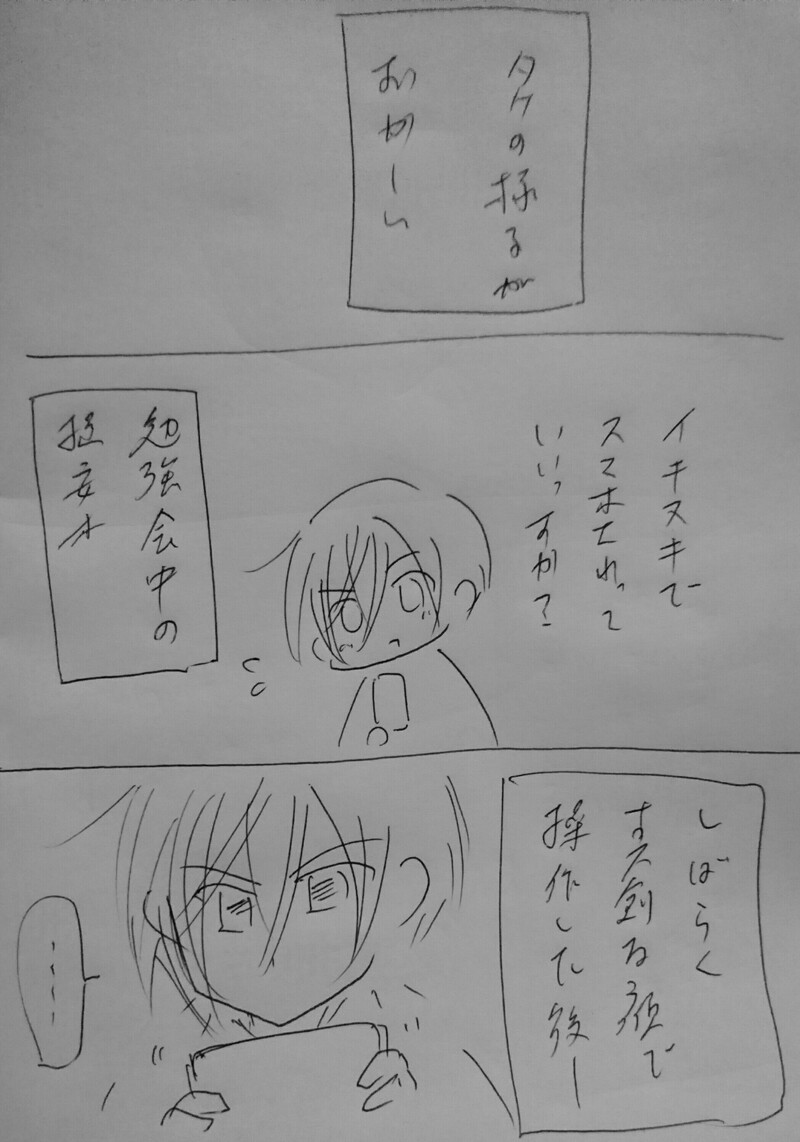 タケの様子が
おかしい
イキヌキで
スマホ
いいっすか?
勉強会中の
しばらく
真剣な顔で
操作した後ー